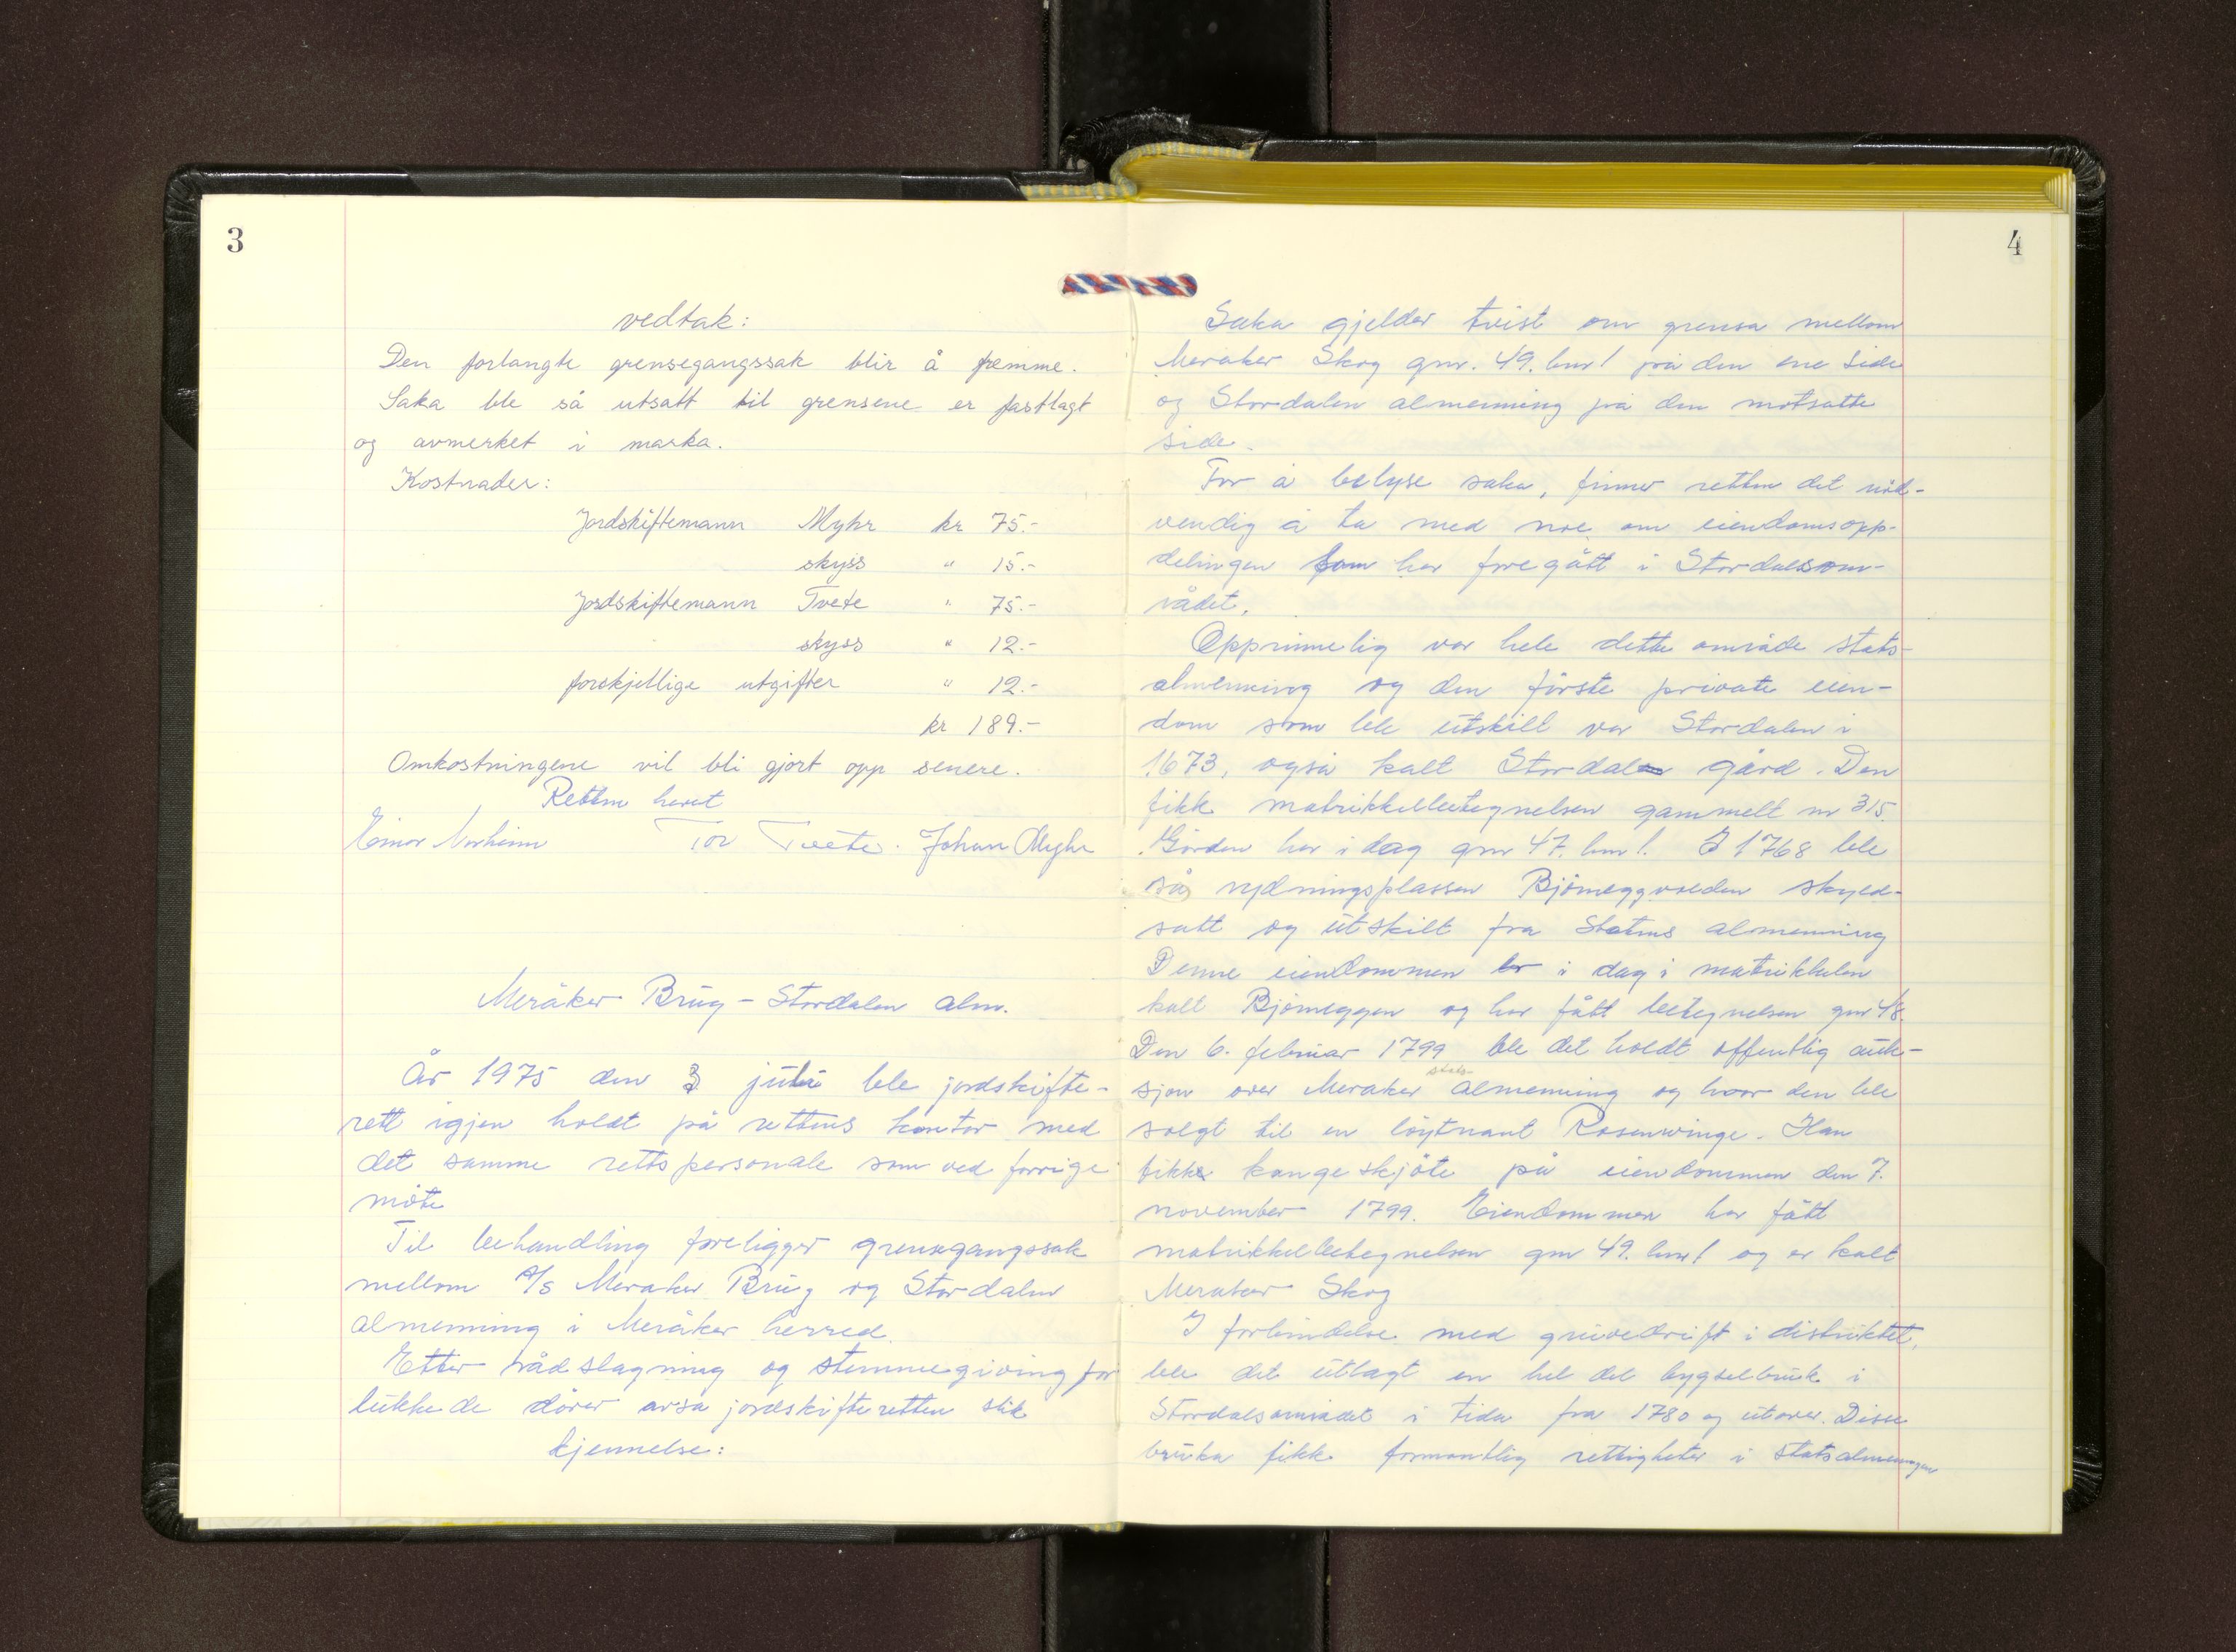 3
vedtak:
Den forlangte grensegangssak blir å fremme.
Saka ble så utsatt til grensene er fastlagt
og avmerket i marka.
Kostnader:
Jordskiftemann Myhr kr 75.-
skyss " 15.-
Jordskiftemann Tvete " 75.-
skyss " 12.-
forskjellige utgifter " 12.-
kr 189.-
Omkostningene vil bli gjort opp senere.
Retten hevet
Einar Norheim Tor Tvete. Johan Myhr
Meråker Brug - Stordalen alm.
År 1975 den 3 juli ble jordskifte-
rett igjen holdt på rettens kontor med
det samme rettspersonale som ved forrige
møte
Til behandling foreligger grensegangssak
mellom A/S Meraker Brug og Stordalen
almenning i Meråker herred.
Etter rådslagning og stemmegiving for
lukkede dører avsa jordskifteretten slik
kjennelse:
4
Saka gjelder tvist om grensa mellom
Meraker Skog gnr. 49. bnr 1 på den ene side
og Stordalen almenning på den motsatte
side.
For å belyse saka, finner retten det nød-
vendig å ta med noe om eiendomsopp-
delingen som har foregått i Stordalsom-
rådet.
Opprinnelig var hele dette område stats-
almenning og den første private eien-
dom som ble utskilt var Stordalen i
1673, også kalt Stordal gård. Den
fikk matrikkelbetegnelsen gammelt nr 315.
Gården har i dag gnr 47. bnr 1. I 1768 ble
så rydningsplassen Bjørneggvolden skyld-
satt og utskilt fra Statens almenning
Denne eiendommen er i dag i matrikkelen
kalt Bjørneggen og har fått betegnelsen gnr 48.
Den 6. februar 1799 ble det holdt offentlig auk-
stats-
sjon over Meraker almenning og hvor den ble
solgt til en løytnant Rosenvinge. Han
fikk kongeskjøte på eiendommen den 7.
november 1799. Eiendommen har fått
matrikkelbetegnelsen gnr 49. bnr 1 og er kalt
Meraker Skog
I forbindelse med gruvedrift i distriktet,
ble det utlagt en hel del bygselbruk i
Stordalsområdet i tida fra 1780 og utover. Disse
bruka fikk formentlig rettigheter i statsalmenningen